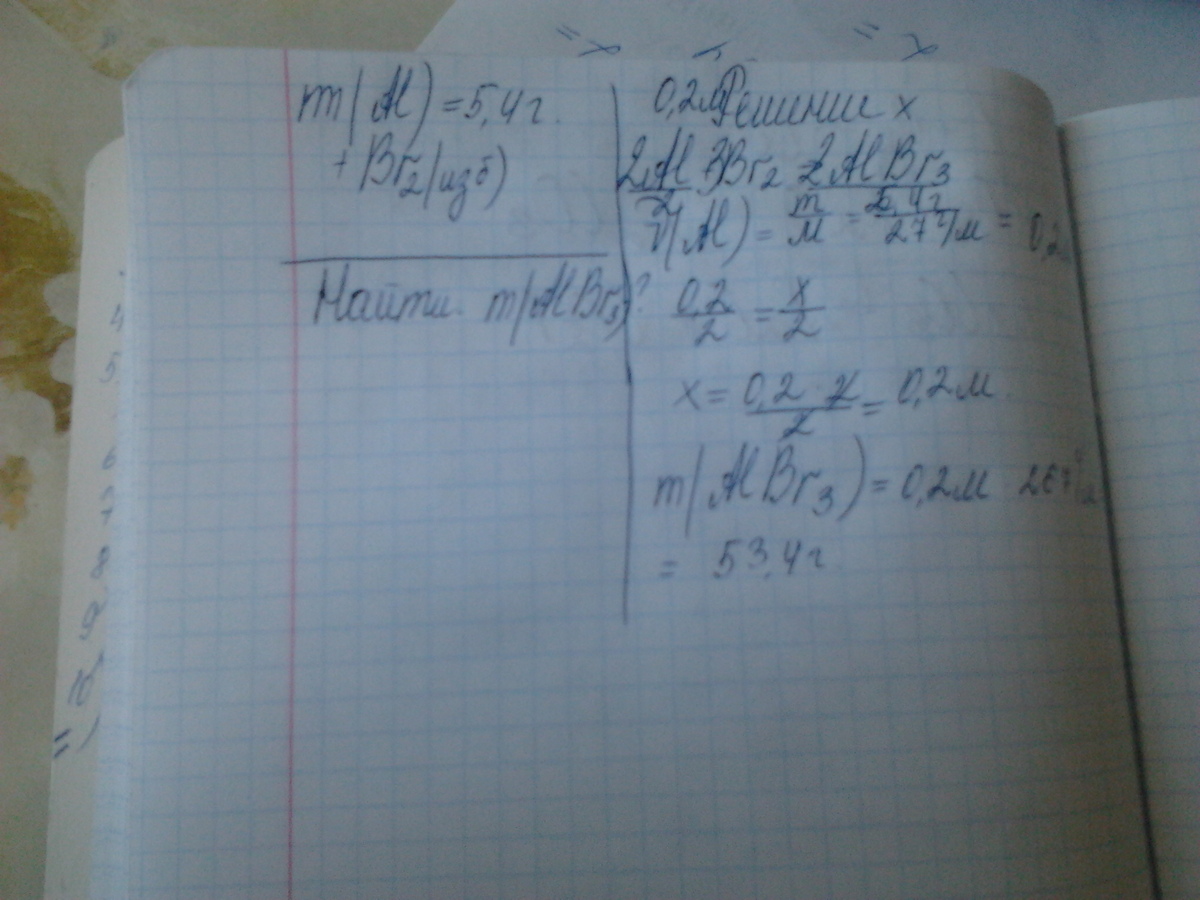 m(Al) = 5,4 г.
+ Br₂(изб)
Найти. m(AlBr₃)?
0,2м Решение x
2Al + 3Br₂ = 2AlBr₃
2 2
ν(Al) = m/M = 5,4г/27г/м = 0,2
0,2/2 = x/2
x = 0,2 · 2/2 = 0,2м.
m(AlBr₃) = 0,2м 267г/
= 53,4г
4
5
6
7
8
9